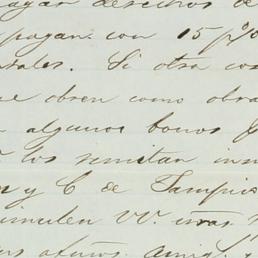 pagar derechos de
pagan con 15 p%
Si otra cos
que obren como obra
algunos bonos
los remitan inm
y C de Tampico
VV.
afmos. amig